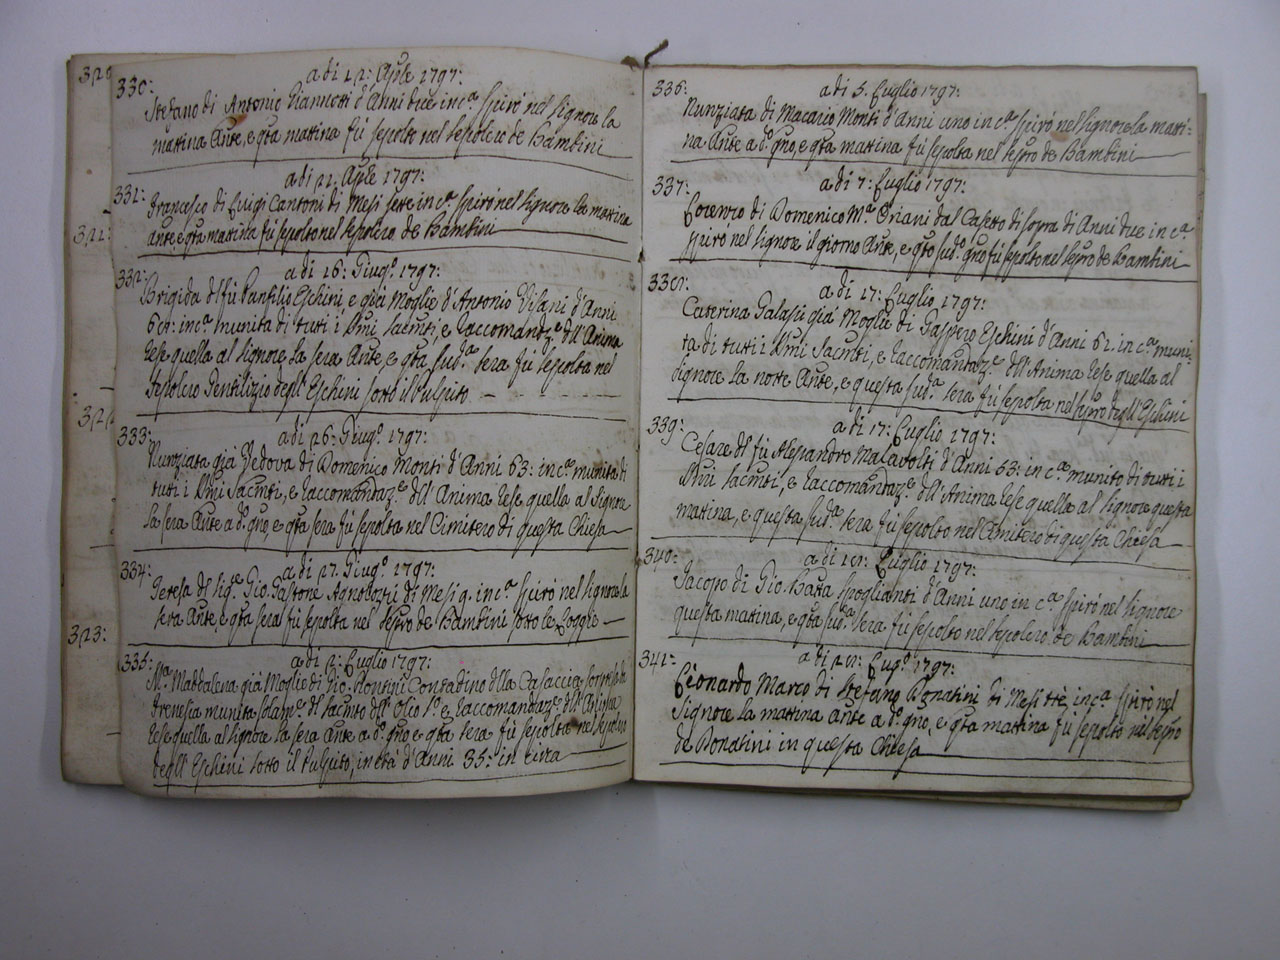 320
321:
322
323:
330:
a di 12: Aprle 1797:
Stefano di Antonio Giannotti d'Anni due inc.ª spirò nel Signore la
mattina Ante, e qta mattina fù sepolto nel sepolcro de Bambini
331:
a di 21. Aprle 1797:
Francesco di Luigi Cantoni di Mesi sette inc.ª spirò nel Signore la mattina
ante, e qta mattina fù sepolto nel sepolcro de Bambini
332:
a di 16: Giug.º 1797:
Brigida del fù Panfilio Eschini, e già Moglie d'Antonio Visani d'Anni
inc.ª munita di tuti i SSmi Sacmti, e Raccomandaz.e dll'Anima
rese quella al Signore la sera Ante, e qta sud.ª sera fù sepolta nel
Sepolcro Gentilizio degl'Eschini sotto il Pulpito
333:
a di 26: Giug.º 1797:
Nunziata già Vedova di Domenico Monti d'Anni 63: inc.ª munita di
tuti i SSmi Sacmti, e Raccomandaz.e dll'Anima rese quella al Signore
la sera Ante a d.º gno, e qta sera fù sepolta nel Cimitero di questa Chiesa
334:
a di 27. Giug.º 1797:
Teresa del Sig.e Gio. Gastone Agnolozzi di Mesi 9. inc.ª spirò nel Signore la
sera Ante, e qta sera fù sepolta nel sepro de Bambini sotto le Loggie
335:
a di 2: Luglio 1797:
M.ª Maddalena già Moglie di Gio. Contadino dlla Casaccia
munita solam.e del Sacmto dell'Olio S.º e Raccomandaz.e dll'Anima
rese quella al Signore la sera Ante a d.º gno e qta sera fù sepolta nel sepolcro
degl'Eschini sotto il Pulpito, in età d'Anni 35: in circa
336:
a di 5. Luglio 1797:
Nunziata di Macario Monti d'Anni uno in c.ª spirò nel Signore la matti-
na Ante a d.º gno, e qta mattina fù sepolta nel sepro de Bambini
337:
a di 7: Luglio 1797:
Lorenzo di Domenico M.ª Oriani dal Casetto di sopra di Anni due in c.ª
spirò nel Signore il giorno Ante, e qto sud.º gno fù sepolto nel sepro de Bambini
338:
a di 17: Luglio 1797:
Caterina Galassi già Moglie di Gaspero Eschini d'Anni 62. in c.ª muni-
ta di tuti i SSmi Sacmti, e Raccomandaz.e dll'Anima rese quella al
Signore la notte Ante, e questa sud.ª sera fù sepolta nel sepro degl'Eschini
339:
a di 17: Luglio 1797:
Cesare del fù Alessandro Malavolti d'Anni 53: in c.ª munito di tutti i
SSmi Sacmti, e Raccomandaz.e dll'Anima rese quella al Signore questa
mattina, e questa sud.ª sera fù sepolto nel Cimitero di questa Chiesa
340:
a di Luglio 1797:
Jacopo di Gio. Batta Spoglianti d'Anni uno in c.ª spirò nel Signore
questa mattina, e qta sud.ª sera fù sepolto nel sepolcro de Bambini
341:
a di Lug.º 1797:
Leonardo Marco di Stefano Donatini di Mesi trè inc.ª spirò nel
Signore la mattina ante a d.º gno, e qta mattina fù sepolto nel sepro
de Donatini in questa Chiesa